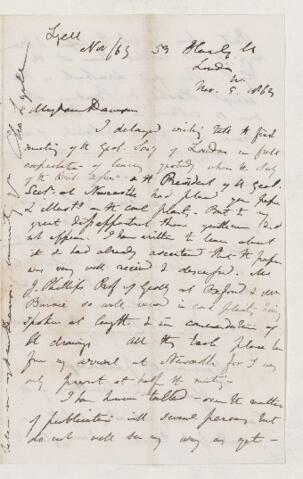 Lyell
Nov/63 53 Harley St
London
W.
Nov. 5. 1863
My dear Dawson
I delayed writing till the first
meeting of the Geol. Socy of London in full
expectation of learning yesterday when the Secy
of the Brit. & the President of the Geol.
Sect. at Newcastle had placed your paper
& Illustns on the coal plants. But to my
great disappointment these gentlemen did
not appear. I have written to learn about
it & had already ascertained that the paper
was very well received & discussed. Mr
J. Phillips Prof of Geology at Oxford & Mr
so well versed in coal plants, having
spoken at length & in commendation of
the drawings All this took place before
my arrival at Newcastle for I was
only present at half the meeting.
I have however talked over the matter
of publication with several persons but
do not well see my way as yet